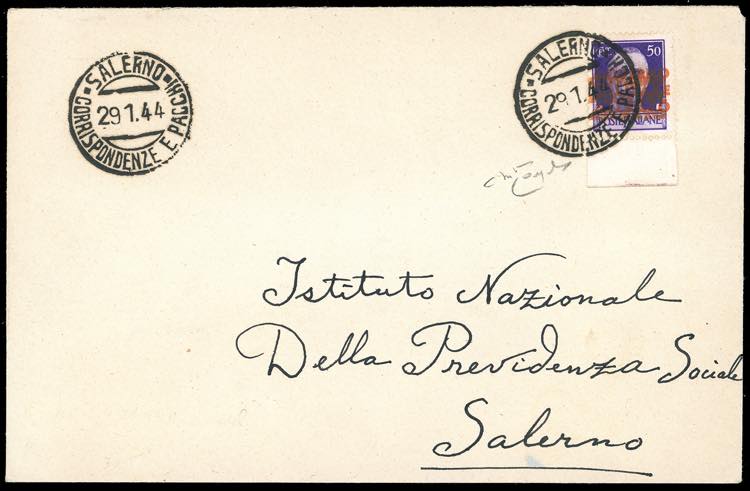 SALERNO
29.1.44
CORRISPONDENZE E PACCHI
SALERNO
29.1.44
CORRISPONDENZE E PACCHI
50
Istituto Nazionale
Della Previdenza Sociale
Salerno